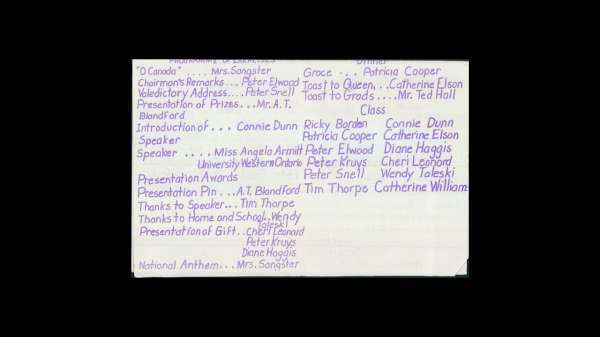 Programme of Exercises
"O Canada" .... Mrs. Sangster
Chairman's Remarks... Peter Elwood
Valedictory Address.... Peter Snell
Presentation of Prizes... Mr. A.T.
Blandford
Introduction of ... Connie Dunn
Speaker
Speaker .... Miss Angela Armitt
University Western Ontario
Presentation Awards
Presentation Pin ... A.T. Blandford
Thanks to Speaker... Tim Thorpe
Thanks to Home and School.. Wendy
Taleski
Presentation of Gift.. Cheri Leonard
Peter Kruys
Diane Haggis
National Anthem... Mrs. Sangster
Dinner
Grace ... Patricia Cooper
Toast to Queen... Catherine Elson
Toast to Grads.... Mr. Ted Hall
Class
Ricky Borden Connie Dunn
Patricia Cooper Catherine Elson
Peter Elwood Diane Haggis
Peter Kruys Cheri Leonard
Peter Snell Wendy Taleski
Tim Thorpe Catherine Williams